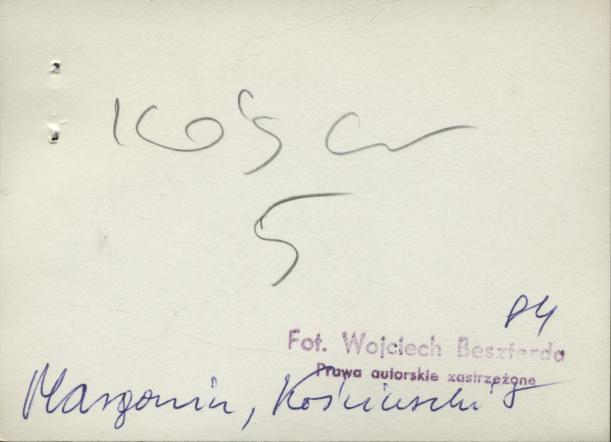 Kości
5
84
Fot. Wojciech Beszterda
Prawa autorskie zastrzeżone
Margonin, Kościuszki 8